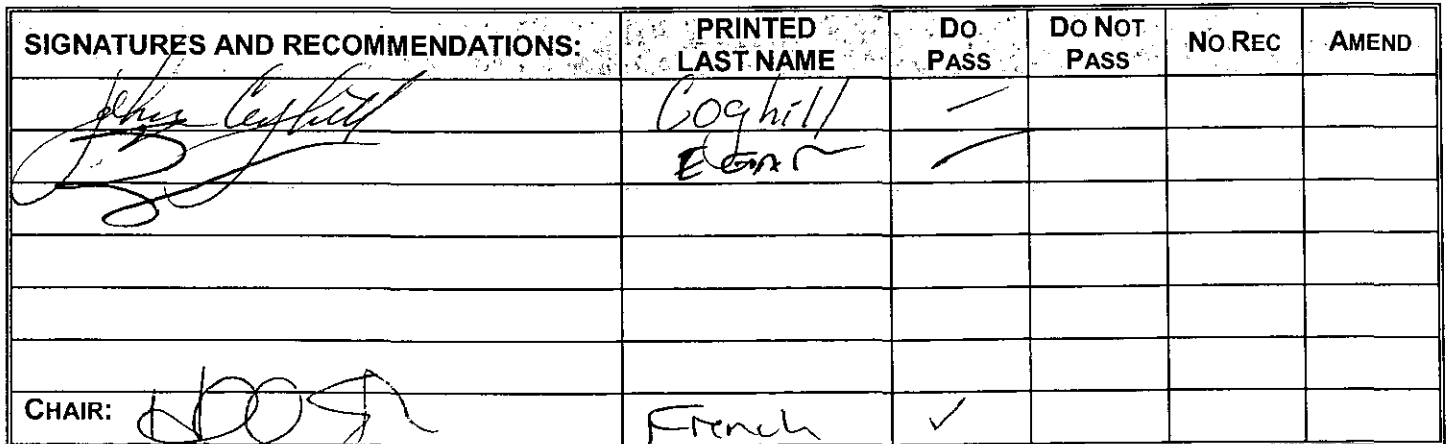 SIGNATURES AND RECOMMENDATIONS: PRINTED LAST NAME DO PASS DO NOT PASS NO REC AMEND
John Coghill Coghill
EGAN
CHAIR: French ✓